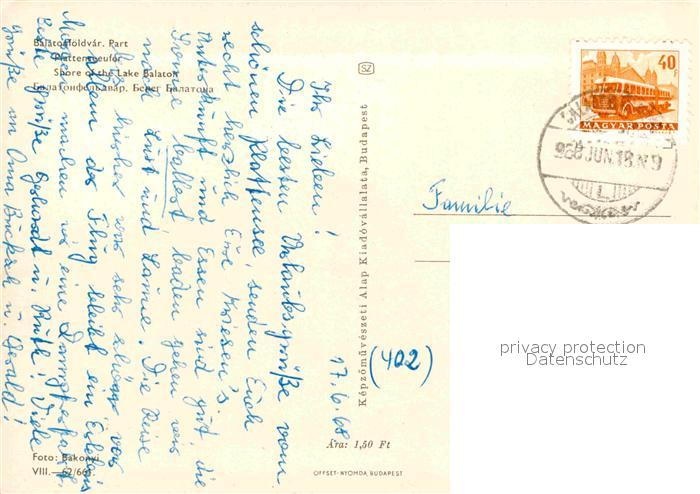 Balatonföldvár. Part
Plattenseeufer
Shore of the Lake Balaton
Балатонфельдвар. Берег Балатона
SZ
40
F
MAGYAR POSTA
968 JUN.18.N 9
L
Familie
privacy protection
Datenschutz
Képzőművészeti Alap Kiadóvállalata, Budapest
(402)
17.6.68
Ihr Lieben!
Die besten Urlaubsgrüße vom
schönen Plattensee, senden Euch
recht herzlich Eure
Unterkunft und Essen sind gut die
Sonne baden gehn wir
nach Lust und Laune. Die Reise
bisher war sehr vor
allem der Flug bleibt ein Erlebnis
Morgen machen wir eine Dampferfahrt
Beste Grüße u. Ruth! Viele
Grüße an Oma, u. Gerald!
Foto: Bakonyi
VIII.—62/661.
Ára: 1,50 Ft
OFFSET-NYOMDA, BUDAPEST